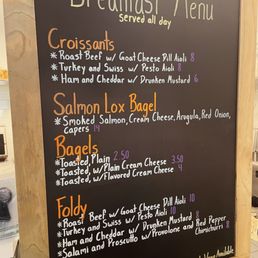 Breakfast Menu
served all day
Croissants
* Roast Beef w/ Goat Cheese Dill Aioli 8
* Turkey and Swiss w/ Pesto Aioli 8
* Ham and Cheddar w/ Drunken Mustard 6
Salmon Lox Bagel
* Smoked Salmon, Cream Cheese, Arugula, Red Onion,
capers 14
Bagels
* Toasted, Plain 2.50
* Toasted, w/ Plain Cream Cheese 3.50
* Toasted, w/ Flavored Cream Cheese 4
Foldy
* Roast Beef w/ Goat Cheese Dill Aioli 10
* Turkey and Swiss w/ Pesto Aioli 10
* Ham and Cheddar w/ Drunken Mustard 8
* Salami and Proscutto w/ Provolone and Red Pepper
Chimichurri 8
Available